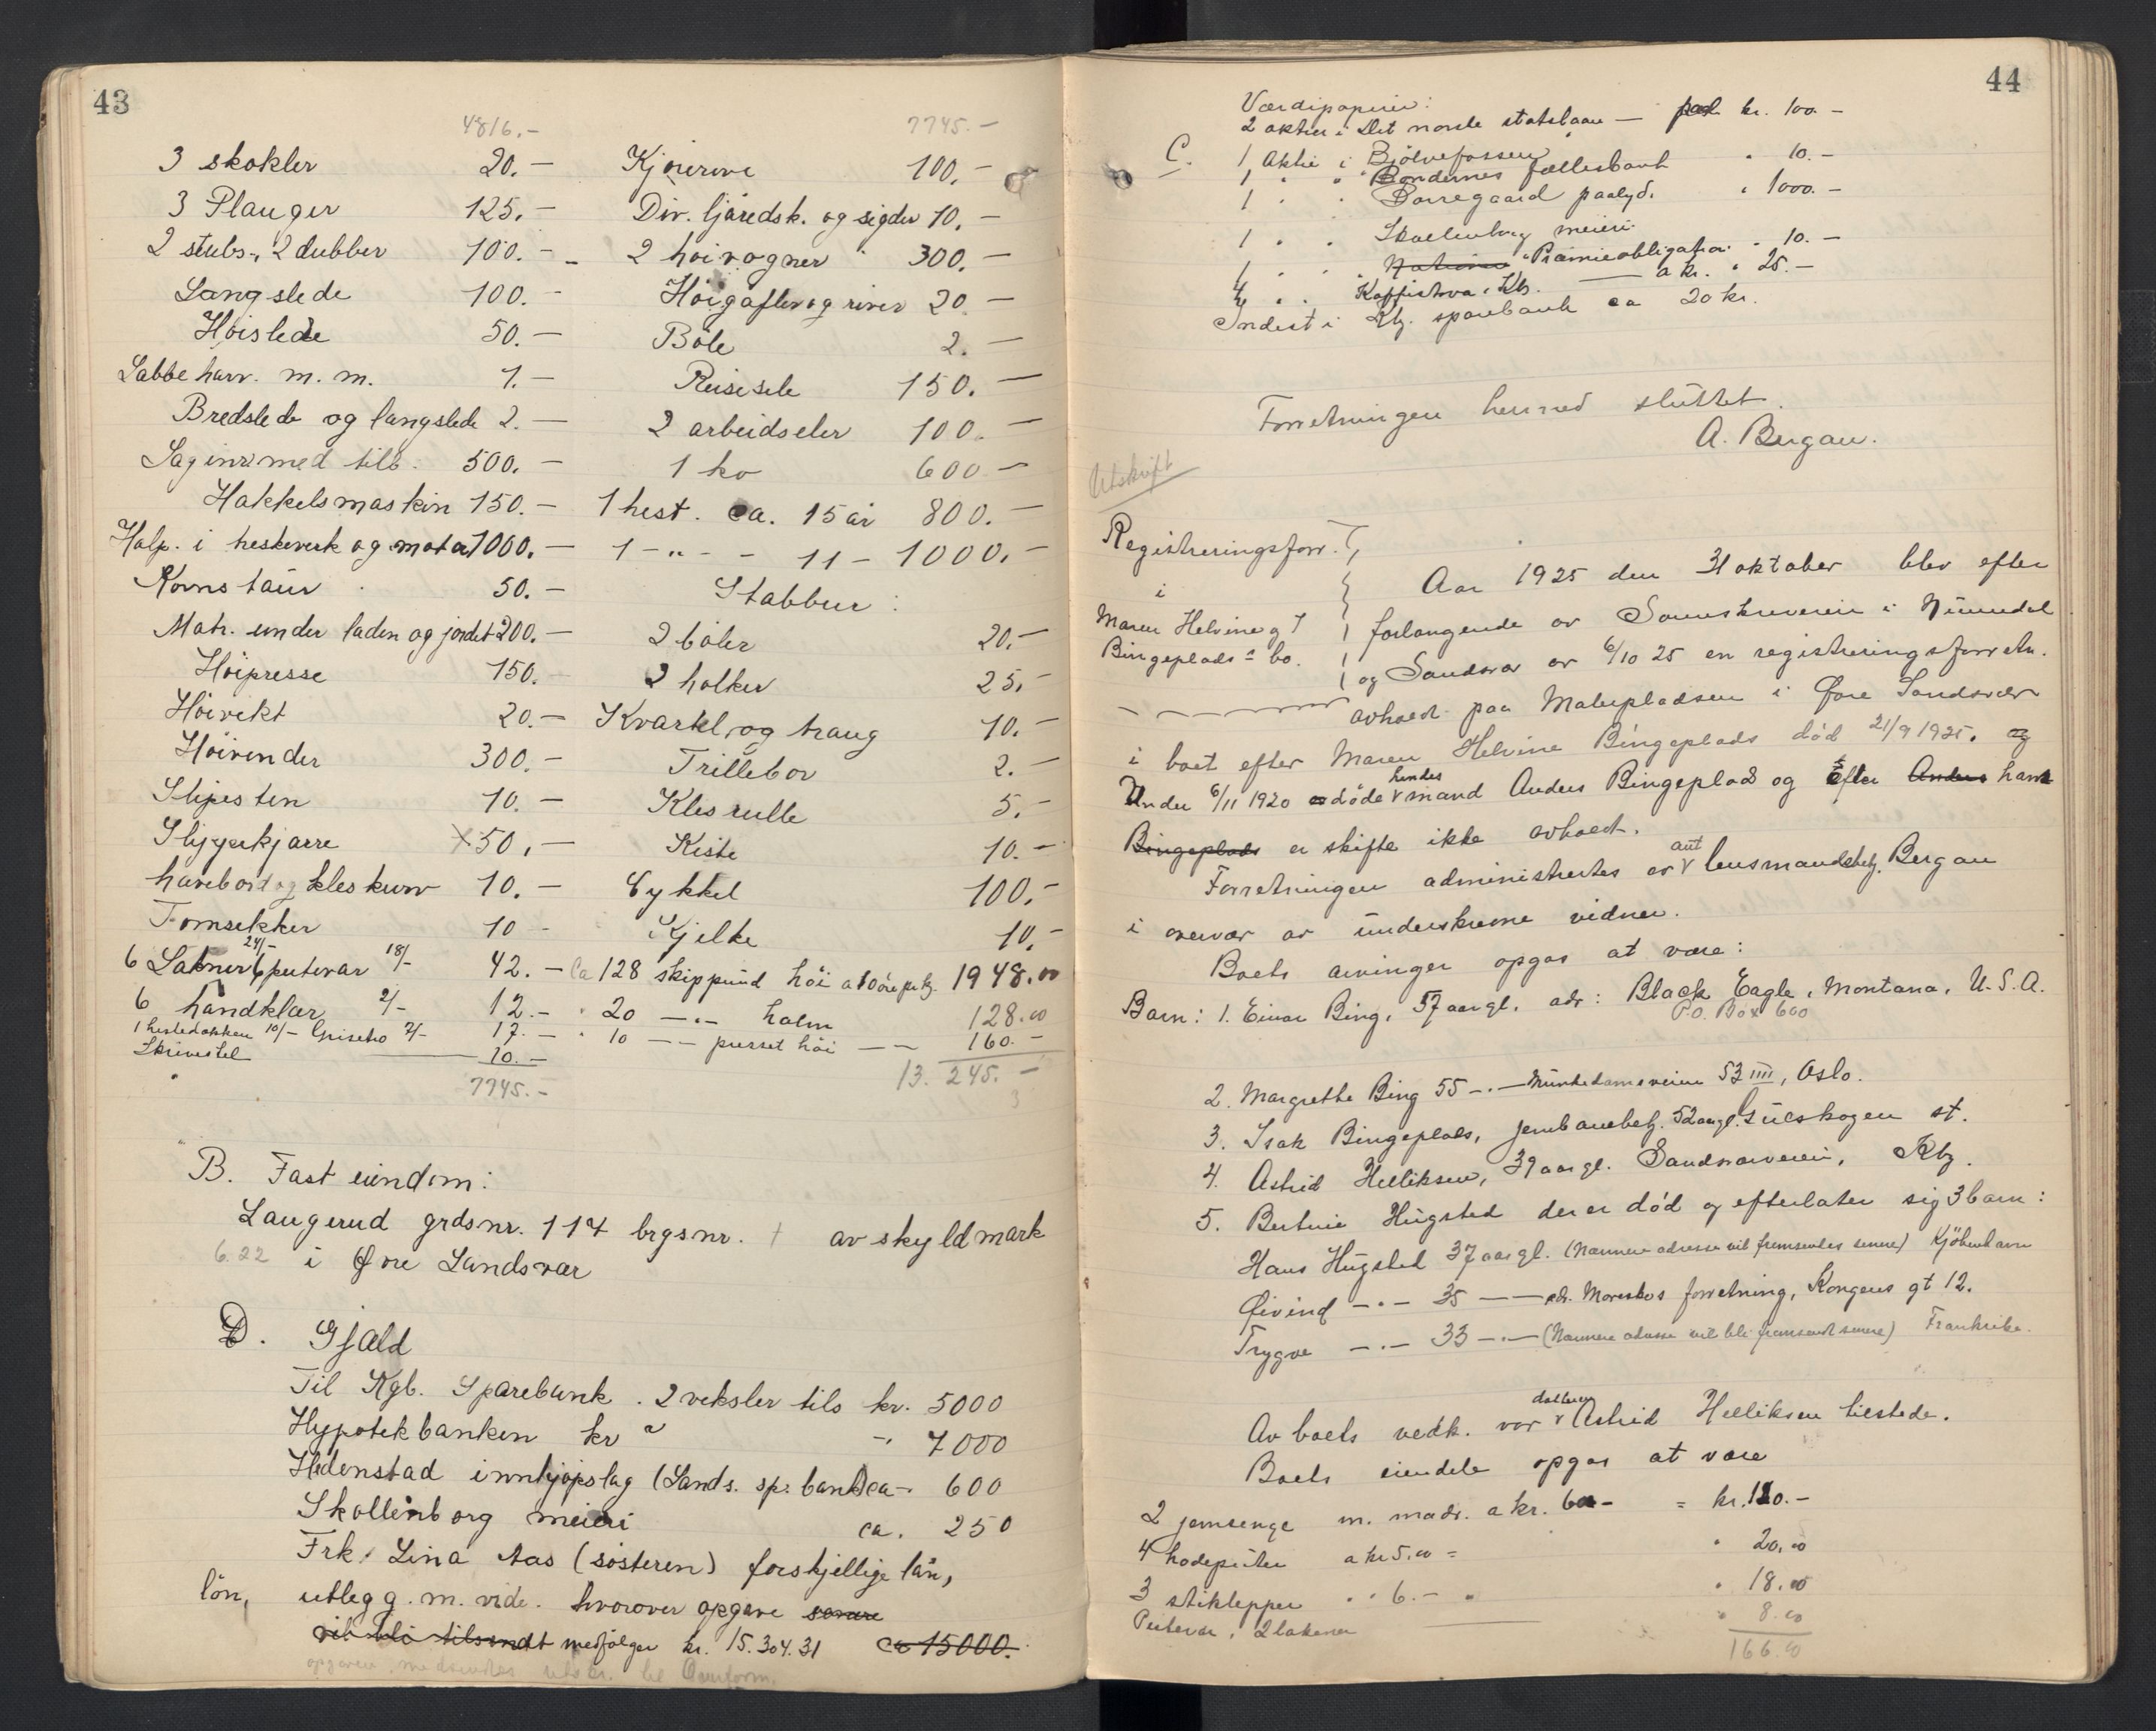 43
4816.-
3 skokler 20.-
3 Plauger 125.-
2 stubs., 2 dubber 100.-
Langslede 100.-
Høislede 50.-
Labbeharv. m.m. 1.-
Bredslede og langslede 2.-
Saginr. med tilb. 500.-
Hakkelsmaskin 150.-
Halp. i treskeverk og motor 1000.-
Kornstaur 50.-
Matr. under laden og jordet 200.-
Höipresse 150.-
Höivekt 20.-
Höivender 300.-
Slipesten 10.-
Skyggekjærre 50.-
havebord og kleskurv 10.-
Tomsekker 10-
6 Lakner 24/- 6 putevar 18/- 42.-
6 håndklær 2/- 12.-
1 hestedækken 10/- Griseho 7/- 17.-
Skrivestel 10.-
7745.-
7745.-
Kjörerive 100.-
Div. ljåredsk. og sigder 10.-
2 høivogner 300.-
Høigafler og river 20-
Bøle 2.-
Reisesele 150.-
2 arbeidseler 100.-
1 ko 600-
1 hest. ca. 15 år 800.-
1 - " - - 11 - 1000.-
Stabbur:
2 bøler 20.-
2 holker 25.-
Kvartel og traug 10.-
Trillebor 2.-
Klesrulle 5.-
Kiste 10.-
Cykkel 100.-
Kjelke 10.-
Ca 128 skippund höi a 10 øre pr kg. 1948.00
" 20 -"- halm 128.00
" 10 -- presset höi -- 160.-
13.245.-
B. Fast eiendom:
Laugerud grdsnr. 114 brgsnr. 1 av skyldmark
6.22 i Øvre Sandsvær
D. Gjæld
Til Kgb. Sparebank. 2 veksler tils kr. 5000
Hypotekbanken kr " -. 7000
Hedenstad innkjøpslag (Sands. sp. bank) ca -. 600
Skollenborg meieri ca. 250
Frk. Lina Aas (søsteren) forskjellige lån,
lön, utlegg. m. vide. hvorover opgave senere
vil bli tilsendt medfølger kr. 15.304.31 ca 15000.-
44
Værdipapirer:
2 aktier i Det norske statslaan - kr. 100-
C. 1 Aktie i Bjölvefossen " 10.-
1 " " Bøndernes fællesbank
1 " " Borregaard paalyd. " 1000.-
1 " " Skollenborg meieri " 10.-
1 " " Præmieobligation
4 " " Kaffistova i Kbg. a kr. " 25.-
Indest i Kbg. sparebank ca 20 kr.
Forretningen hermed sluttet.
A. Bergan.
Utskrift
Registreringsforr.
i
Maren Helvine
Bingeplads = bo.
Aar 1925 den 31 oktober blev efter
forlangende av Sorenskriveren i Numedal
og Sandsvær av 6/10 25 en registreringsforretn.
avholdt paa Malerpladsen i Øvre Sandsvær
i boet efter Maren Helvine Bingeplads død 21/9 1925. og
Under 6/11 1920 døde hendes mand Anders Bingeplads og Efter Anders ham
Bingeplads er skifte ikke avholdt.
Forretningen administrertes av aut lensmandsbetj. Bergan
i overvær av underskrevne vidner.
Boets arvinger opgas at være:
Barn: 1. Einar Bing, 57 aar gl. adr: Black Eagle, Montana, U.S.A.
P.O. Box 600
2. Margrethe Bing 55 -"- Munkedamsveien 53 IIII, Oslo.
3. Isak Bingeplads, jernbanebetj. 52 aar gl. Gulskogen st.
4. Astrid Helliksen, 39 aar gl. Sandsværveien, Kbg.
5. Bertine Hugsted der er død og efterlater sig 3 barn:
Hans Hugsted 37 aar gl. (Nærmere adresse vil fremsendes senere) Kjøbenhavn
Øivind -"- 35 -- adr. Morestøs forretning, Kongens gt 12.
Trygve -"- 33 -"- (Nærmere adresse vil bli fremsendt senere) Frankrike.
Av boets vedk. var datteren Astrid Helliksen tilstede.
Boets eiendele opgas at være
2 jernsenge m. madr. a kr. 60- = kr. 120.-
4 hodeputer a kr 5.00 = " 20.00
3 stiklepper " " 6.- " " 18.00
Putevar, 2 lakener " 8.00
166.00